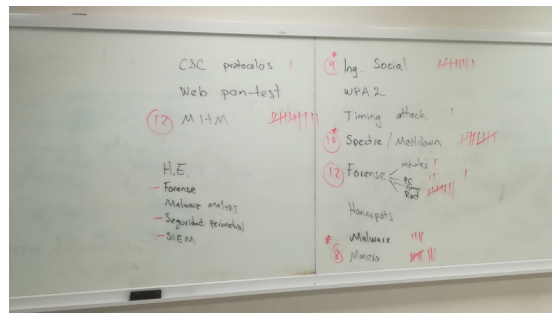 CSC protocolos
Web pan-test
12 MITM
H.E.
- Forense
Malware analysis
- Seguridad perimetral
- SIEM
9 Ing. Social
WPA2
Timing attack
10 Spectre / Meltdown
12 Forense
móviles
PC
Ram
Honeypots
* Malware
8 Mineros